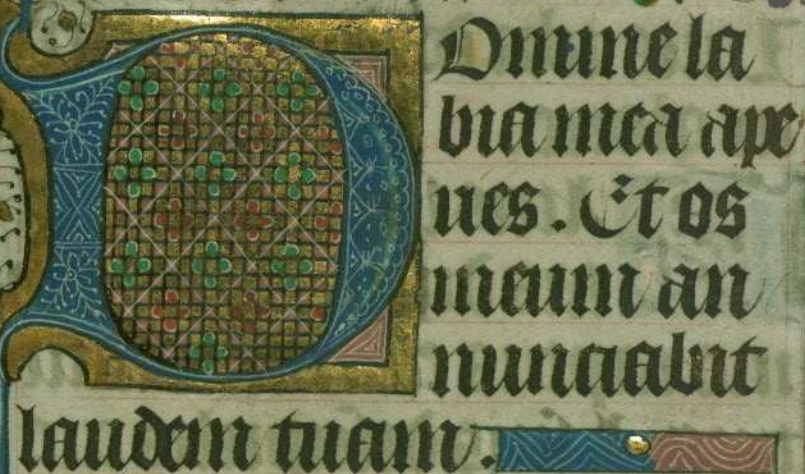 DOmine la
bia mea ape
ries. Et os
meum an
nunciabit
laudem tuam.